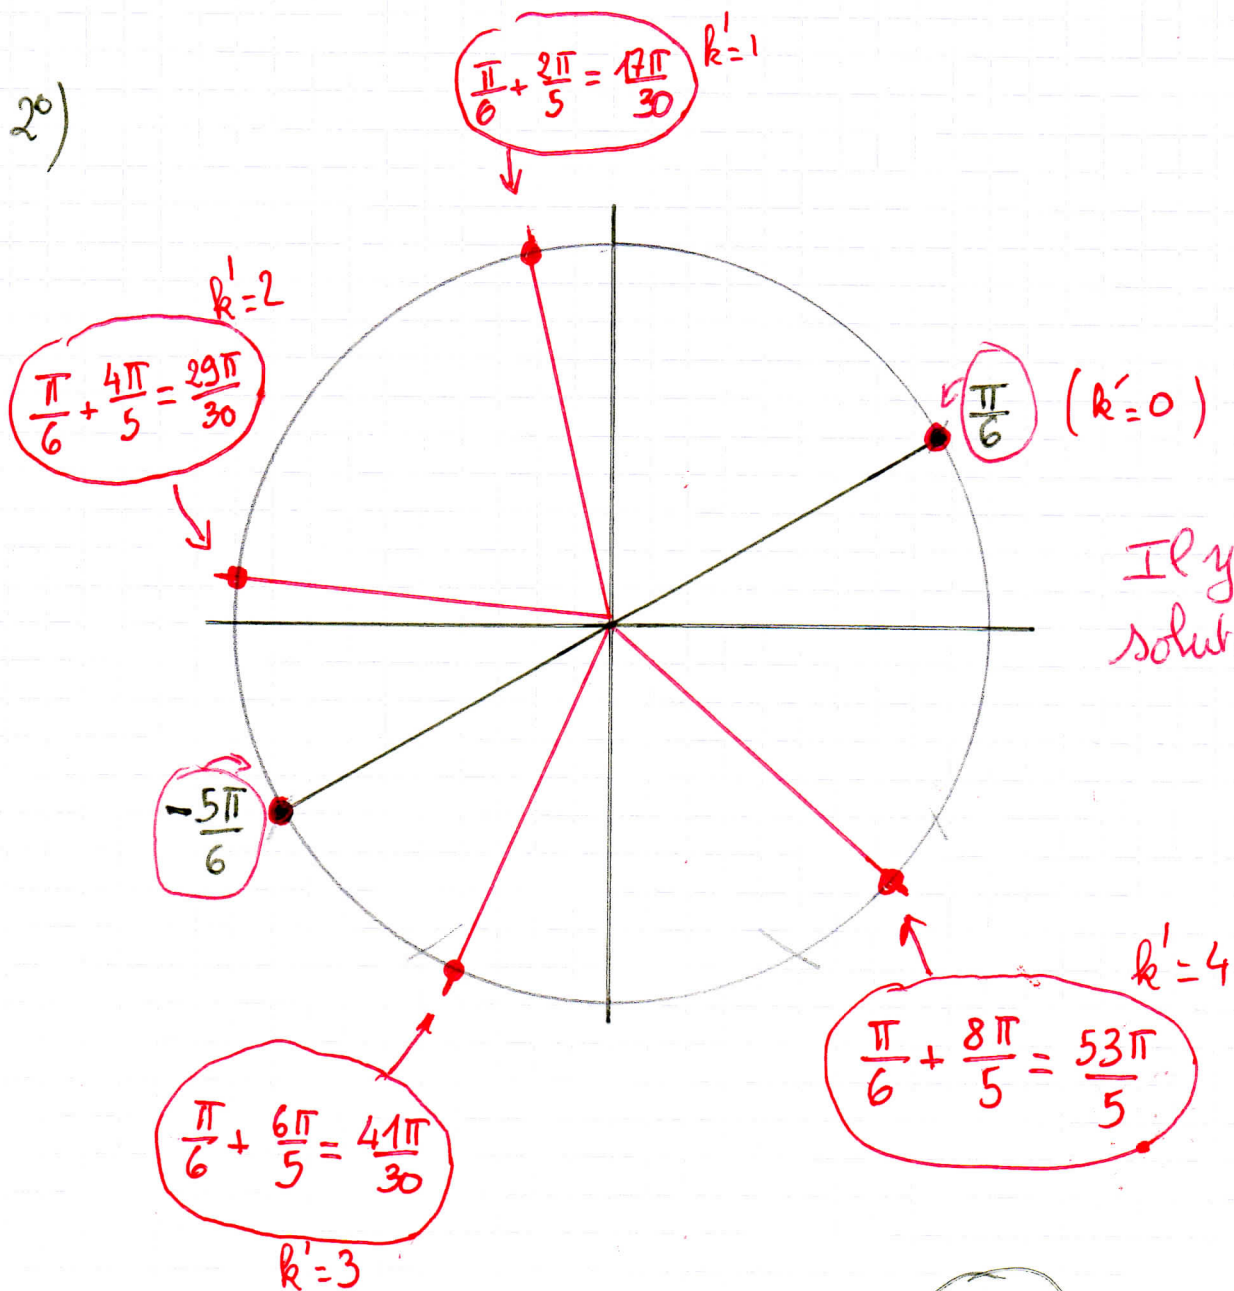 2°)
π/6 + 2π/5 = 17π/30 k'=1
k'=2
π/6 + 4π/5 = 29π/30
π/6 (k'=0)
Il y
solut
-5π/6
k'=4
π/6 + 8π/5 = 53π/5
π/6 + 6π/5 = 41π/30
k'=3